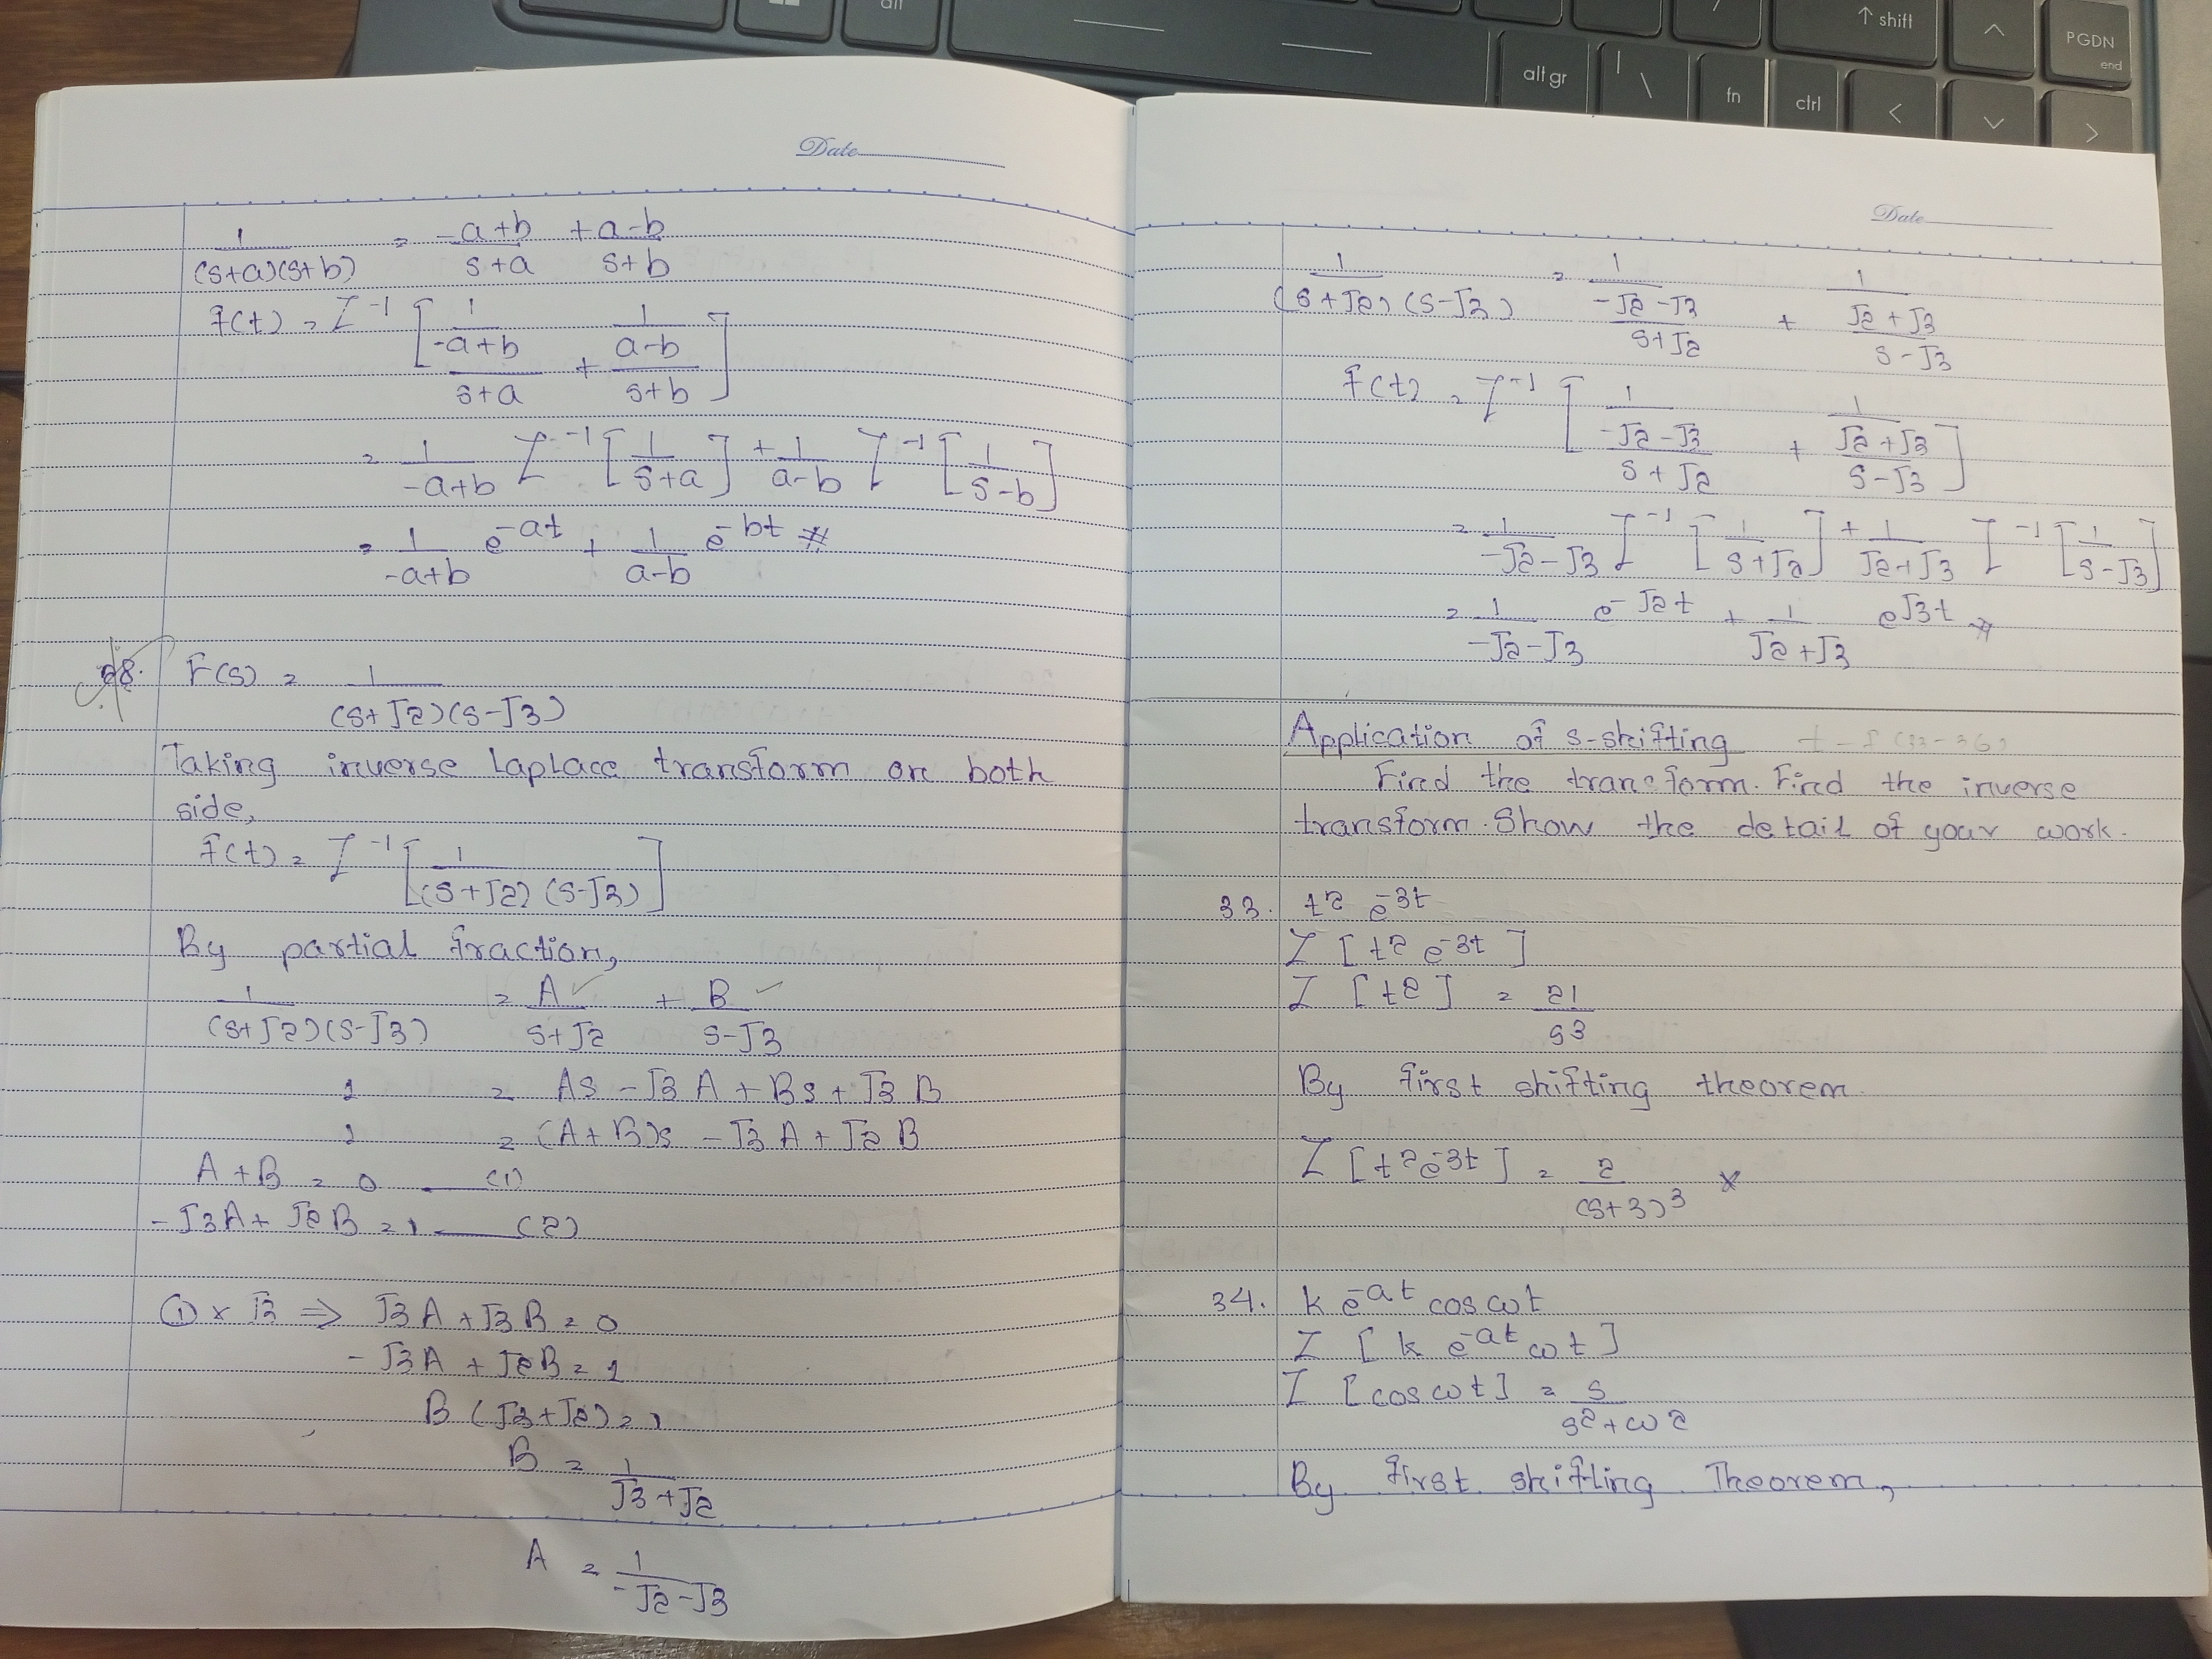 alt
↑ shift
PGDN
end
alt gr
| \
fn
ctrl
<
>
Date
1/(s+a)(s+b) = -a+b/s+a + a-b/s+b
f(t) = L⁻¹ [ (1/-a+b)/s+a + (1/a-b)/s+b ]
= 1/-a+b L⁻¹ [1/s+a] + 1/a-b L⁻¹ [1/s-b]
= 1/-a+b e^-at + 1/a-b e^-bt #
28. F(s) = 1/(s+√2)(s-√3)
Taking inverse Laplace transform on both
side,
f(t) = L⁻¹ [1/(s+√2)(s-√3)]
By partial fraction,
1/(s+√2)(s-√3) = A/s+√2 ✓ + B/s-√3 ✓
1 = As - √3 A + Bs + √3 B
1 = (A+B)s - √3 A + √2 B
A+B = 0 — (1)
-√3A + √2B = 1 — (2)
① × √3 ⇒ √3A + √3B = 0
- √3A + √2B = 1
B (√3+√2) = 1
B = 1/√3+√2
A = 1/-√2-√3
Date
1/(s+√2)(s-√3) = (1/-√2-√3)/s+√2 + (1/√2+√3)/s-√3
f(t) = L⁻¹ [ (1/-√2-√3)/s+√2 + (1/√2+√3)/s-√3 ]
= 1/-√2-√3 L⁻¹ [1/s+√2] + 1/√2+√3 L⁻¹ [1/s-√3]
= 1/-√2-√3 e^-√2t + 1/√2+√3 e^√3t #
Application of s-shifting t-s (33-36)
Find the transform. Find the inverse
transform. Show the detail of your work.
33. t² e^-3t
L [t² e^-3t]
L [t²] = 2!/s³
By first shifting theorem
L [t² e^-3t] = 2/(s+3)³ #
34. k e^-at cos ωt
L [k e^-at ωt]
L [cos ωt] = s/s²+ω²
By first shiftling Theorem,